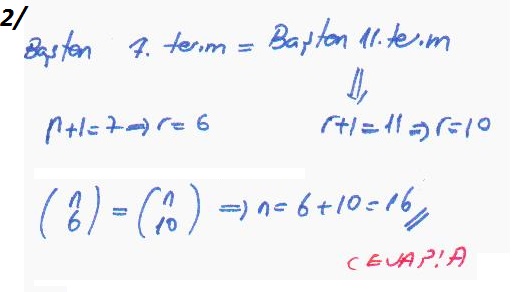 2/
Baştan 7. terim = Baştan 11. terim
⇓
r+1=7 ⇒ r=6 r+1=11 ⇒ r=10
(n 6) = (n 10) ⇒ n=6+10=16
CEVAP: A